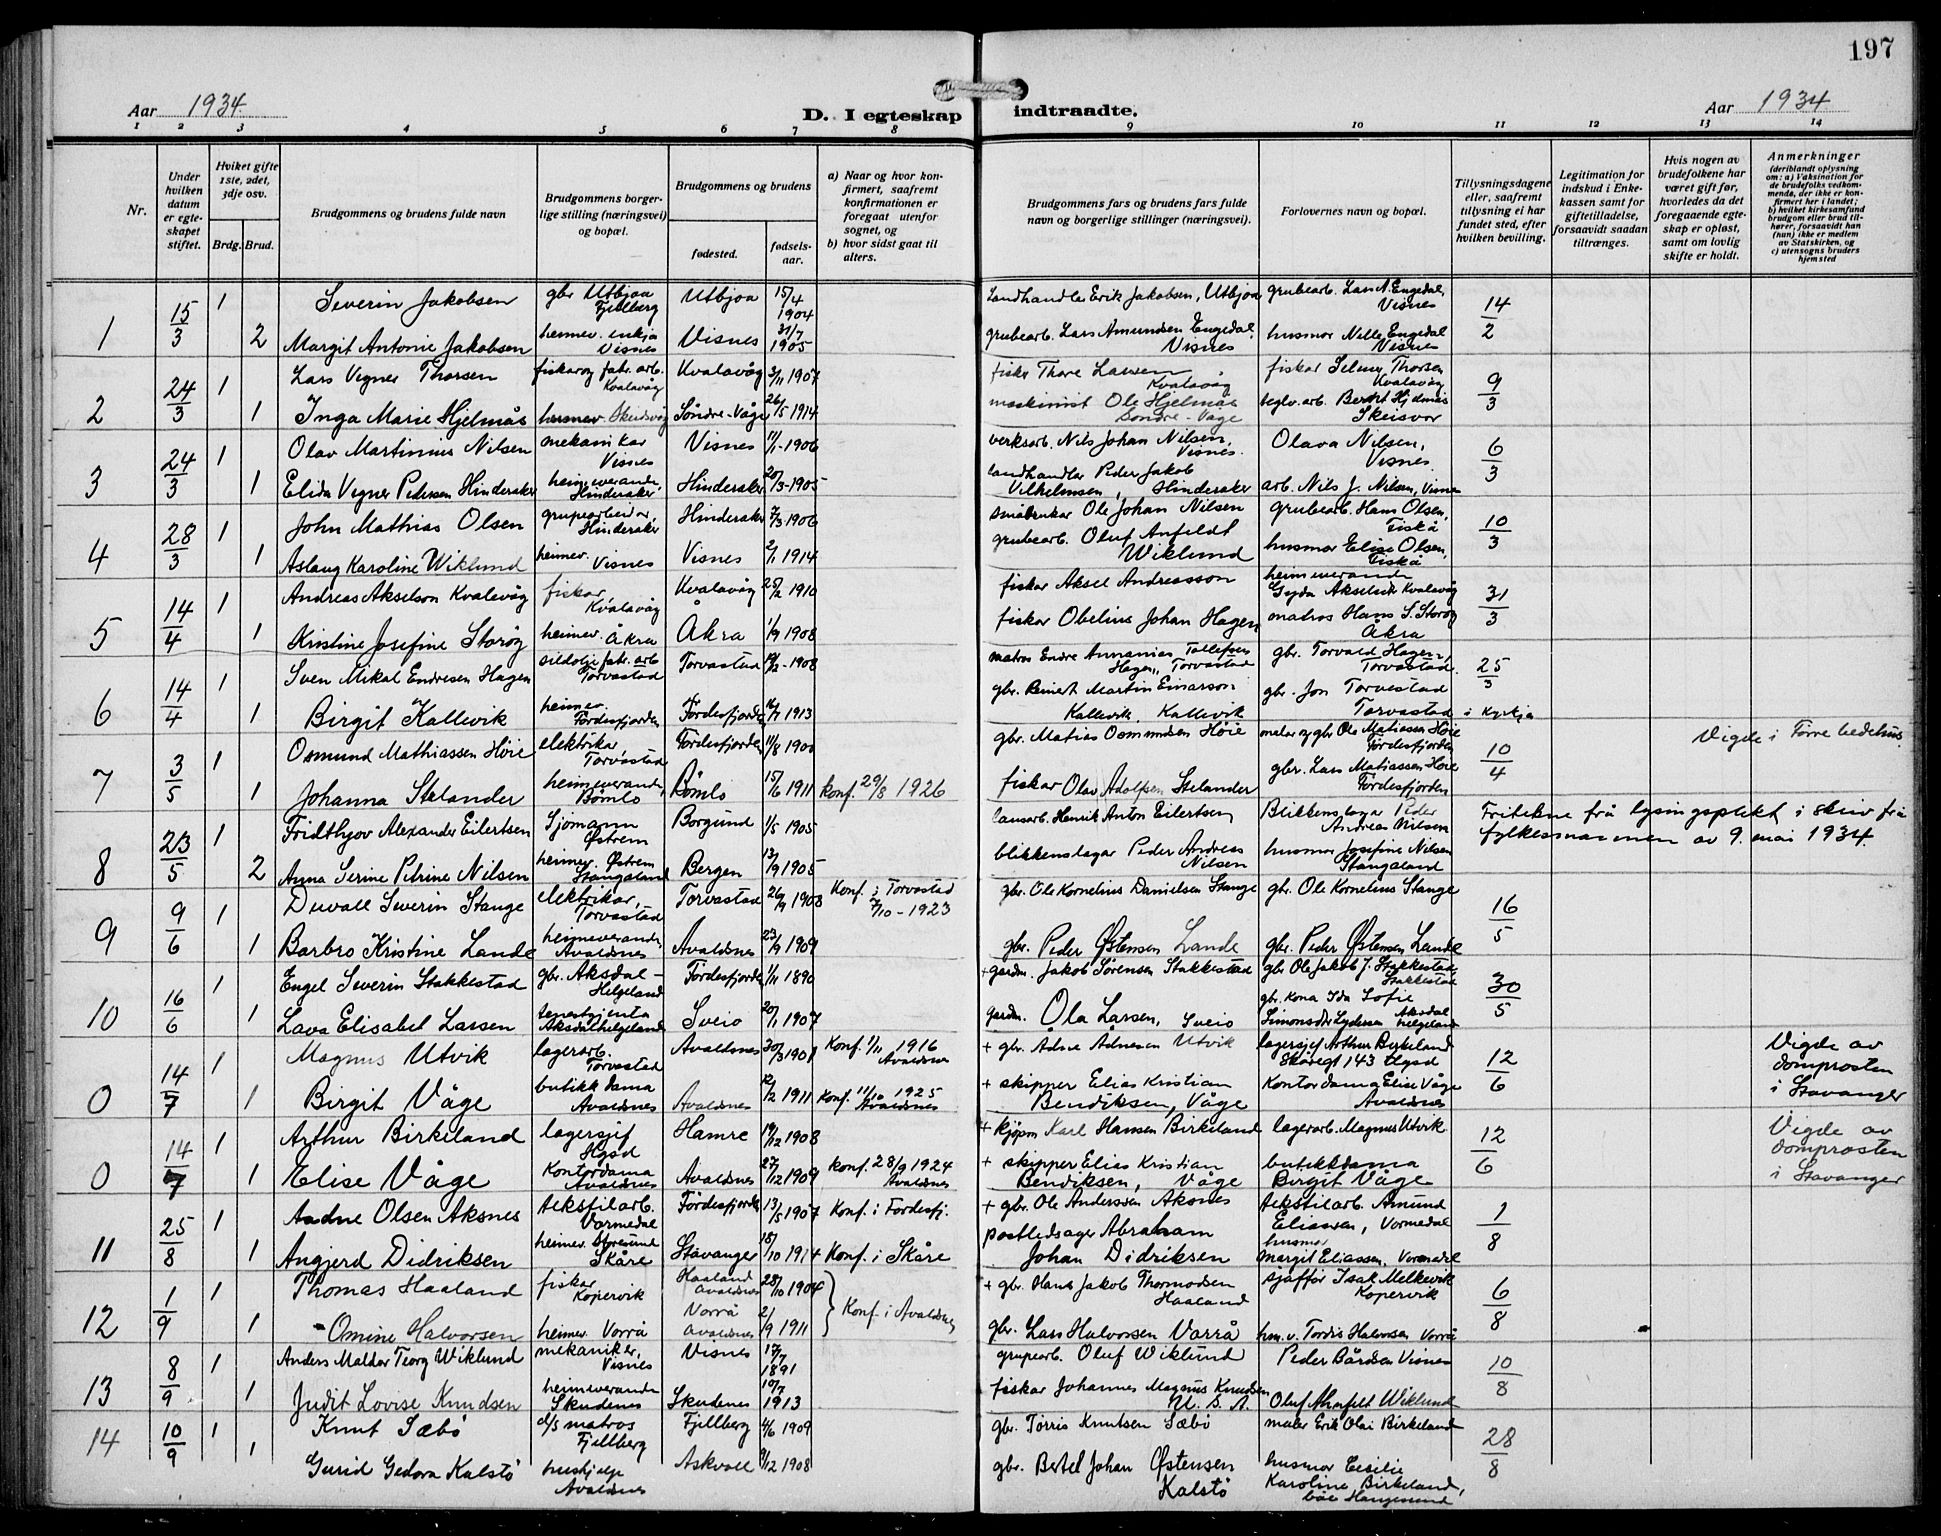 197
Aar 1934.
D. I egteskap indtraadte.
Aar 1934
1 2 3 4 5 6 7 8 9 10 11 12 13 14
Nr.
Under hvilken datum er egteskapet stiftet.
Hviket gifte 1ste, 2det, 3dje osv.
Brdg. Brud.
Brudgommens og brudens fulde navn
Brudgommens borgerlige stilling (næringsvei) og bopæl.
Brudgommens og brudens
fødested.
fødselsaar.
a) Naar og hvor konfirmert, saafremt konfirmationen er foregaat utenfor sognet, og
b) hvor sidst gaat til alters.
Brudgommens fars og brudens fars fulde navn og borgerlige stillinger (næringsvei).
Forlovernes navn og bopæl.
Tillysningsdagene eller, saafremt tillysning ei har fundet sted, efter hvilken bevilling.
Legitimation for indskud i Enkekassen samt for giftetilladelse, forsaavidt saadan tiltrænges.
Hvis nogen av brudefolkene har været gift før, hvorledes da det foregaaende egteskap er opløst, samt om lovlig skifte er holdt.
Anmerkninger (deriblandt oplysning om: a) Vaksination for de brudefolks vedkommende, der ikke er konfirmert her i landet; b) hvilket kirkesamfund brudgom eller brud tilhører, forsaavidt han (hun) ikke er medlem av Statskirken, og c) utensogns bruders hjemsted
1 15/3 1 Severin Jakobsen gbr Utbjoa Fjellberg Utbjoa 15/4 1904 Landhandler Erik Jakobsen, Utbjoa grubearb. Lars A. Engedal, Visnes 14/2
2 Margit Antonie Jakobsen heimev. enkja Visnes Visnes 31/7 1905 grubearb. Lars Amundsen Engedal Visnes husmor Nelly Engedal Visnes
2 24/3 1 Lars Vigner Thorsen fiskar og fabr. arb. Kvalavåg Kvalavåg 3/11 1907 fiskar Thore Larsen Kvalavåg fiskar Selmer Thorsen Kvalavåg 9/3
1 Inga Marie Hjelmås heimev. Skeidsvåg Söndre-Våge 26/5 1914 maskinist Ole Hjelmås Söndre-Våge teglv.arb. Berent Hjelmås Skeisvor
3 24/3 1 Olav Martinius Nilsen mekanikar Visnes Visnes 11/1-1906 verksarb. Nils Johan Nilsen, Visnes. Olava Nilsen, Visnes 6/3
1 Elida Vigner Pedersen Hinderaker heimeverande, Hinderaker Hinderaker 20/3-1905 landhandlar Peder Jakob Vilhelmsen, Hinderaker arb. Nils J. Nilsen, Visnes
4 28/3 1 John Mathias Olsen grupearbeidar, Hinderaker Hinderaker 7/3-1906 småbrukar Ole Johan Nilsen grubearb. Hans Olsen, Fiskå 10/3
1 Aslaug Karoline Wiklund heimev. Visnes Visnes 2/1 1914 grubearb. Oluf Anfeldt Wiklund husmor Elise Olsen, Fiskå
5 14/4 1 Andreas Akselson Kvalavåg fiskar, Kvalavåg Kvalavåg 25/2 1910 fiskar Aksel Andreasson heimeverande Gyda Akselsdt Kvalavåg 31/3
1 Kristine Josefine Storøy heimev. Åkra Åkra 1/9 1908 fiskar Obelius Johan Hagen matros Hans S. Storøy Åkra
6 14/4 1 Sven Mikal Endresen Hagen sildolje fabr. arb Torvastad Torvastad 19/2-1908 matros Endre Annanias Tollefsen Hagen, Torvastad gbr. Torvald Hagen, Torvastad. 25/3
1 Birgit Kallevik heimev. Fördesfjorden Fördesfjorden 16/7 1913 gbr. Berient Martin Einarson Kallevik, Kallevik gbr. Jon Torvestad Torvastad i kyrkja
7 3/5 1 Osmund Mathiassen Höie elektrikar, Torvastad Fördesfjorden 11/8 1900 gbr. Matias Osmundsen Höie maler og gbr Ole Matiassen Höie Fördesfjorden 10/4 Vigde i Förre bedehus.
1 Johanna Stelander heimeverande, Bömlo Bömlo 15/6 1911 Konf. 29/8 1926 fiskar Olav Adolfsen Stelander gbr. Lars Matiassen Höie Fördesfjorden
8 23/5 1 Fridthjov Alexander Eilertsen Sjömann Østrem Borgund 1/5 1905 lausarb. Henrik Anton Eilertsen Blikkenslagar Peder Andreas Nilsen Fritekne frå lysingsplikt i skriv frå fylkesmannen av 9. mai 1934.
2 Anna Serine Petrine Nilsen heimev. Østrem Stangaland Bergen 13/9 1905 blikkenslagar Peder Andreas Nilsen husmor Josefine Nilsen Stangaland
9 9/6 1 Duvall Severin Stange elektrikar, Torvastad Torvastad 26/9 1908 Konf. i Torvastad 7/10-1923 gbr. Ole Kornelius Danielsen Stange gbr. Ole Kornelius Stange 16/5
1 Barbro Kristine Lande heimeverande, Avaldsnes Avaldsnes 23/9 1909 gbr. Peder Østensen Lande gbr. Peder Østensen Lande
10 16/6 Engel Severin Stakkestad gbr. Aksdal-Helgeland Fördesfjorden 1/11 1890 + gardm. Jakob Sörensen Stakkestad gbr Ole Jakob J. Stakkestad Stakkestad 30/5
1 Lava Elisabet Larsen tenestgjenta Aksdalhelgeland Sveio 20/1 1907 gardm. Ola Larsen, Sveio gbr. kona Ida Sofie Simonsdtr Lydersen Aksdal helgeland
0 14/7 1 Magnus Utvik lagerarb. Torvastad Avaldsnes 30/3 1901 Konf. 1/11 1916 Avaldsnes + gbr. Ådne Ådnesen Utvik lagersjef Arthur Birkeland Skåregt 143 Hgsd 12/6 Vigde av domprosten i Stavanger
1 Birgit Våge butikkdama Avaldsnes Avaldsnes 12/2 1911 Konf. 11/10 1925 Avaldsnes + skipper Elias Kristian Bendiksen, Våge Kontordama Elise Våge Avaldsnes
0 14/7 1 Arthur Birkeland lagersjef Hgsd Hamre 19/12 1908 + kjöpm Karl Hansen Birkeland lagerarb. Magnus Utvik 12/6 Vigde av domprosten i Stavanger
1 Elise Våge Kontordama Avaldsnes Avaldsnes 27/12 1909 konf. 28/9 1924 Avaldsnes + skipper Elias Kristian Bendiksen, Våge butikkdama Birgit Våge
11 25/8 1 Andne Olsen Aksnes tekstilarb. Vormedal Fördesfjorde 13/5 1907 Konf. i Fordesfj. + gbr. Ole Anderssen Aksnes tekstilarb. Amund Eliassen, Vormedal 1/8
1 Angjerd Didriksen heimev. Storesund Skåre Stavanger 15/10 1914 Konf. i Skåre postledsager Abraham Johan Didriksen husmor Margit Eliassen, Vormedal
12 1/9 1 Thomas Haaland fiskar Kopervik Haaland Avaldsnes 28/10 1904 Konf. i Avaldsnes + gbr. Hans Jakob Thormodsen Haaland sjaffør Isak Melkevik Kopervik 6/8
1 Omine Halvorsen heimev. Vorrå Vorrå Avaldsnes 21/9 1911 gbr. Lars Halvorsen Vorrå hm.v. Tordis Halvorsen Vorrå
13 8/9 1 Anders Maldar Teorg Wiklund mekaniker, Visnes Visnes 17/7 1891 grupearb. Oluf Wiklund Peder Bårdsen Visnes 10/8
1 Judit Lovise Knudsen heimeverande Skudenes Skudenes 10/7 1913 fiskar Johannes Magnus Knudsen U. S. A. Oluf Ahnfelt Wiklund
14 10/9 1 Knut Sæbö d/s matros Fjellberg Fjellberg 4/6 1909 gbr. Torris Knutsen Sæbö maler Erik Olai Birkeland 28/8
1 Gurid Gedora Kalstö hushjelp Avaldsnes Askvoll 9/12 1908 gbr. Bertel Johan Østensen Kalstö husmor Cecilie Karoline Birkeland,